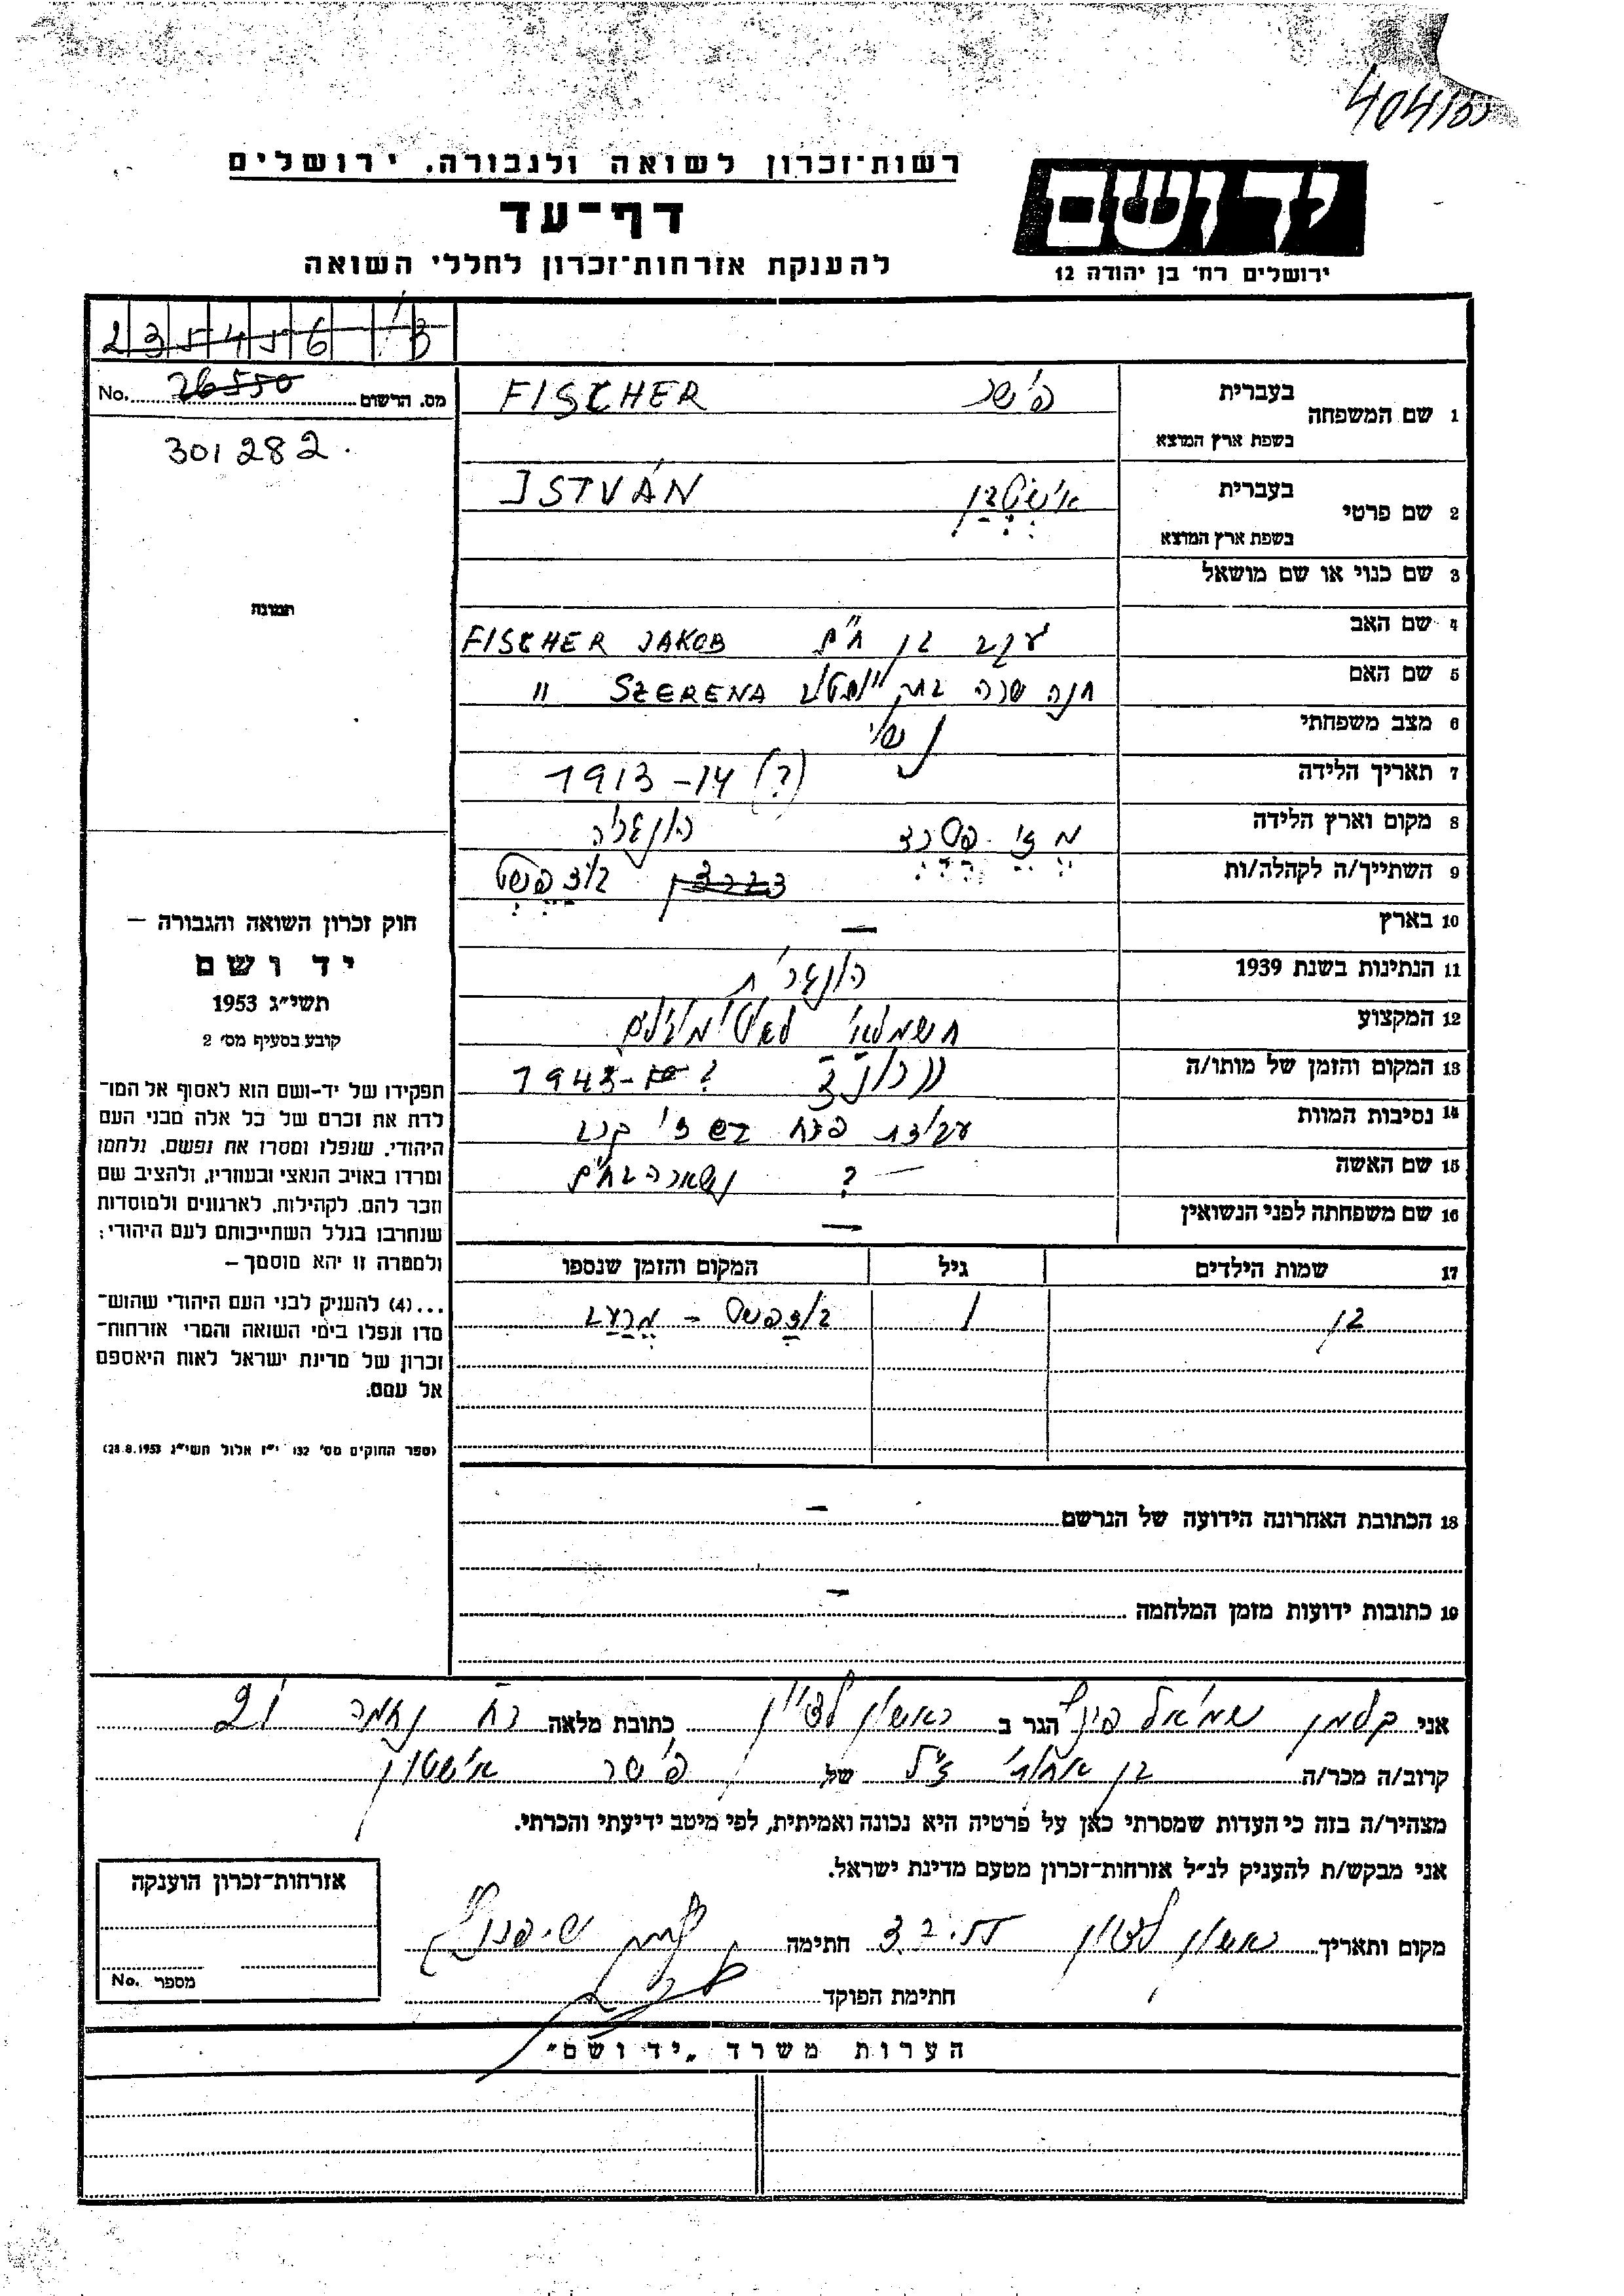 404100
רשות־זכרון לשואה ולגבורה, ירושלים
יד ושם
דף־עד
להענקת אזרחות־זכרון לחללי השואה
ירושלים רח' בן יהודה 12
2 3 5 4 5 6
בעברית
1 שם המשפחה
בשפת ארץ המוצא
פישר FISCHER
מס. הרשום 26550 No.
301282.
בעברית
2 שם פרטי
בשפת ארץ המוצא
אישטבן ISTVÁN
3 שם כנוי או שם מושאל
תמונה
4 שם האב יעקב בן חיים FISCHER JAKOB
5 שם האם חנה שרה בת SZERENA "
6 מצב משפחתי נשוי
7 תאריך הלידה 1913-14 (?)
8 מקום וארץ הלידה הונגריה
9 השתייך/ה לקהלה/ות דברצן בודפשט
10 בארץ —
11 הנתינות בשנת 1939 הונגרית
12 המקצוע חשמלאי
13 המקום והזמן של מותו/ה
14 נסיבות המוות עבודת
15 שם האשה — ? נשארה בחיים
16 שם משפחתה לפני הנשואין —
17 שמות הילדים גיל המקום והזמן שנספו
בן 1 בודפשט –
חוק זכרון השואה והגבורה —
יד ושם
תשי"ג 1953
קובע בסעיף מס' 2
תפקידו של יד־ושם הוא לאסוף אל המו־
לדת את זכרם של כל אלה מבני העם
היהודי, שנפלו ומסרו את נפשם, נלחמו
ומרדו באויב הנאצי ובעוזריו, ולהציב שם
וזכר להם, לקהילות, לארגונים ולמוסדות
שנחרבו בגלל השתייכותם לעם היהודי;
ולמטרה זו יהא מוסמך —
...(4) להעניק לבני העם היהודי שהוש־
מדו ונפלו בימי השואה והמרי אזרחות־
זכרון של מדינת ישראל לאות היאספם
אל עמם.
(ספר החוקים מס' 132 י"ז אלול תשי"ג 28.8.1953)
18 הכתובת האחרונה הידועה של הנרשם –
19 כתובות ידועות מזמן המלחמה –
אני קלמן שמואל הגר ב ראשון לציון כתובת מלאה רח 21
קרוב/ה מכר/ה בן אחותי ז"ל של פישר אישטוון
מצהיר/ה בזה כי העדות שמסרתי כאן על פרטיה היא נכונה ואמיתית, לפי מיטב ידיעתי והכרתי.
אני מבקש/ת להעניק לנ"ל אזרחות־זכרון מטעם מדינת ישראל.
מקום ותאריך ראשון לציון 3.2.55 חתימה
חתימת הפוקד
אזרחות־זכרון הוענקה
מספר No.
הערות משרד „יד ושם"